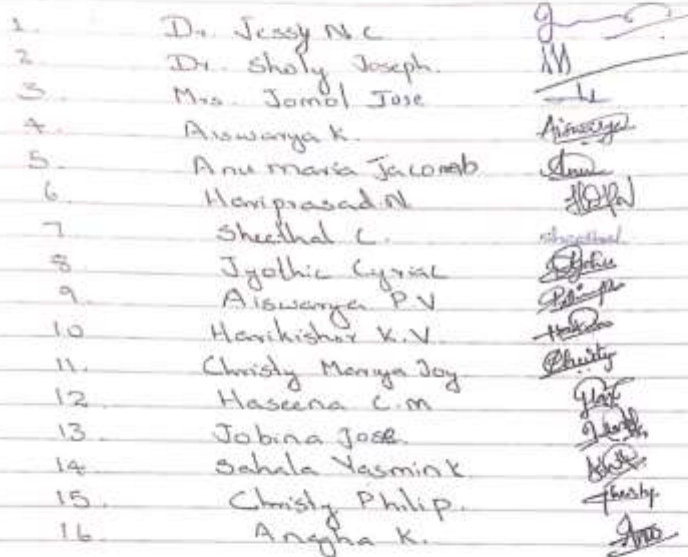 1. Dr. Jessy N.C
2. Dr. Sholy Joseph.
3. Mrs. Jomol Jose
4. Aiswarya K. Aiswarya
5. Anu maria Jacomb Anu
6. Hariprasad. N
7 Sheethal C. Sheethal
8 Jyothic Cyriac
9. Aiswarya P.V
10 Harikishor K.V.
11. Christy Mariya Joy Christy
12 Haseena C.m
13. Jobina Jose.
14 Sahala Yasmin K
15. Christy Philip. Christy
16 Angha K.